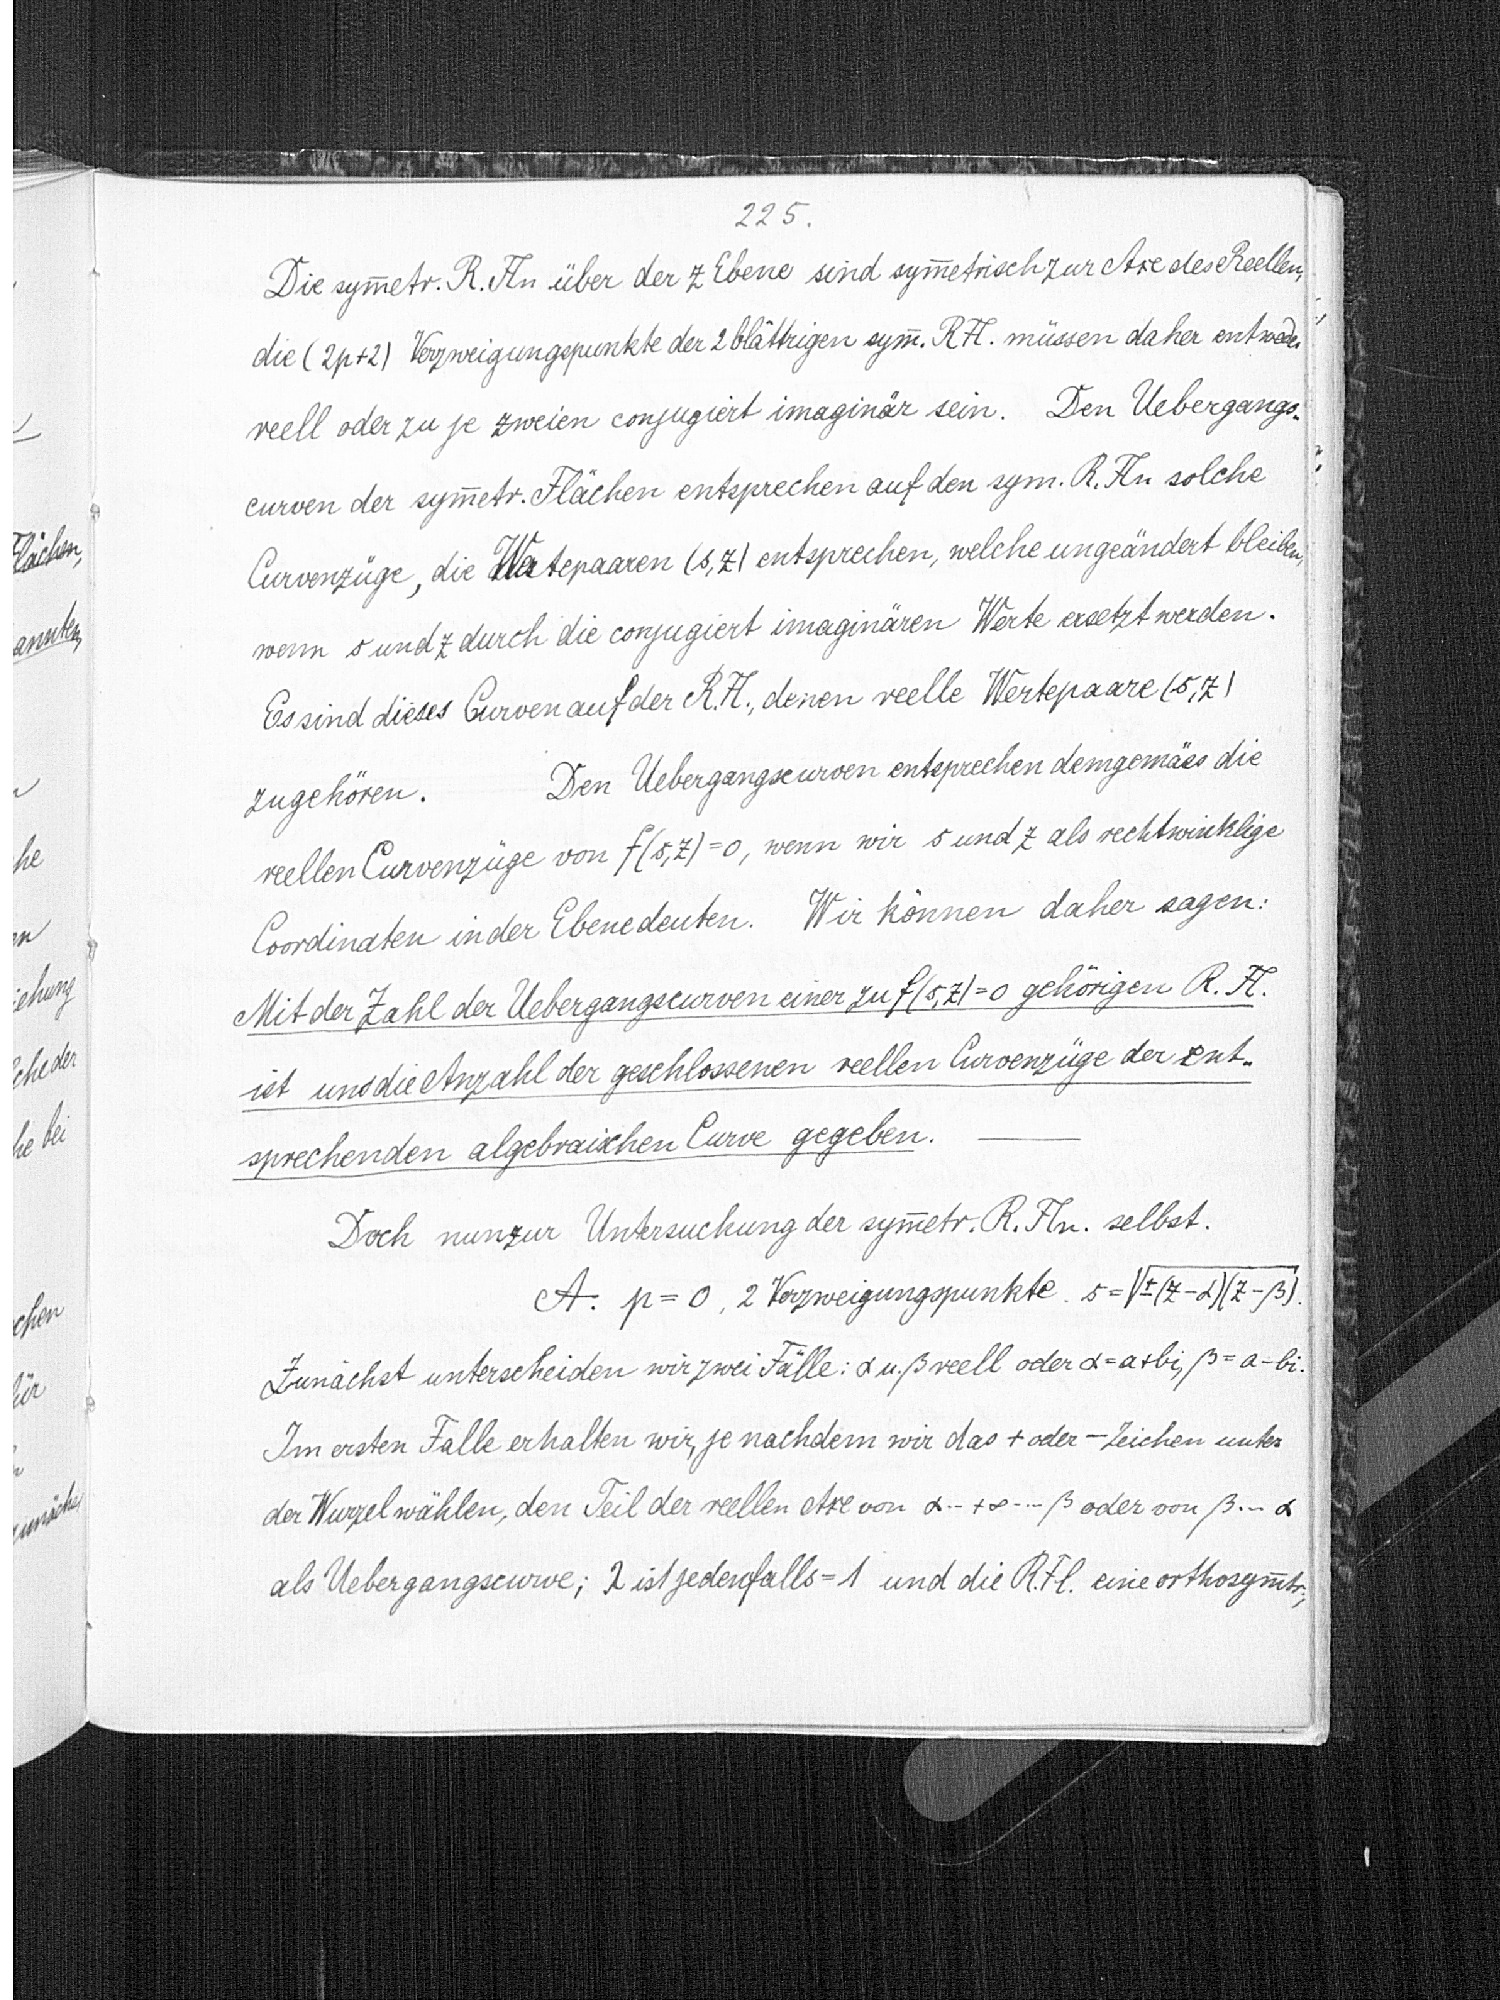 225.
Die sym̅etr. R. Fl̅n über der z Ebene sind sym̅etrisch zur Axe des Reellen,
die (2p+2) Verzweigungspunkte der 2 blättrigen sym̅. R Fl. müssen daher entweder
reell oder zu je zweien conjugiert imaginär sein. Den Uebergangs-
curven der sym̅etr. Flächen entsprechen auf den sym. R. Fln solche
Curvenzüge, die Wertepaaren (s, z) entsprechen, welche ungeändert bleiben,
wenn s und z durch die conjugiert imaginären Werte ersetzt werden.
Es sind dieses Curven auf der R. Fl., denen reelle Wertepaare (s, z)
zugehören. Den Uebergangscurven entsprechen demgemäss die
reellen Curvenzüge von f(s, z) = 0, wenn wir s und z als rechtwinklige
Coordinaten in der Ebene deuten. Wir können daher sagen:
Mit der Zahl der Uebergangscurven einer zu f(s, z) = 0 gehörigen R. Fl.
ist uns die Anzahl der geschlossenen reellen Curvenzüge der ent-
sprechenden algebraischen Curve gegeben. —
Doch nun zur Untersuchung der sym̅etr. R. Fln. selbst.
A. p = 0, 2 Verzweigungspunkte. s = √±(z-α)(z-β).
Zunächst unterscheiden wir zwei Fälle: α u. β reell oder α = a+bi, β = a-bi.
Im ersten Falle erhalten wir, je nachdem wir das + oder - Zeichen unter
der Wurzel wählen, den Teil der reellen Axe von α -- +∞ --- β oder von β --- α
als Uebergangscurve; λ ist jedenfalls = 1 und die R. Fl. eine orthosym̅tr.,
Flächen,
annten
he
iehung
che der
he bei
chen
für